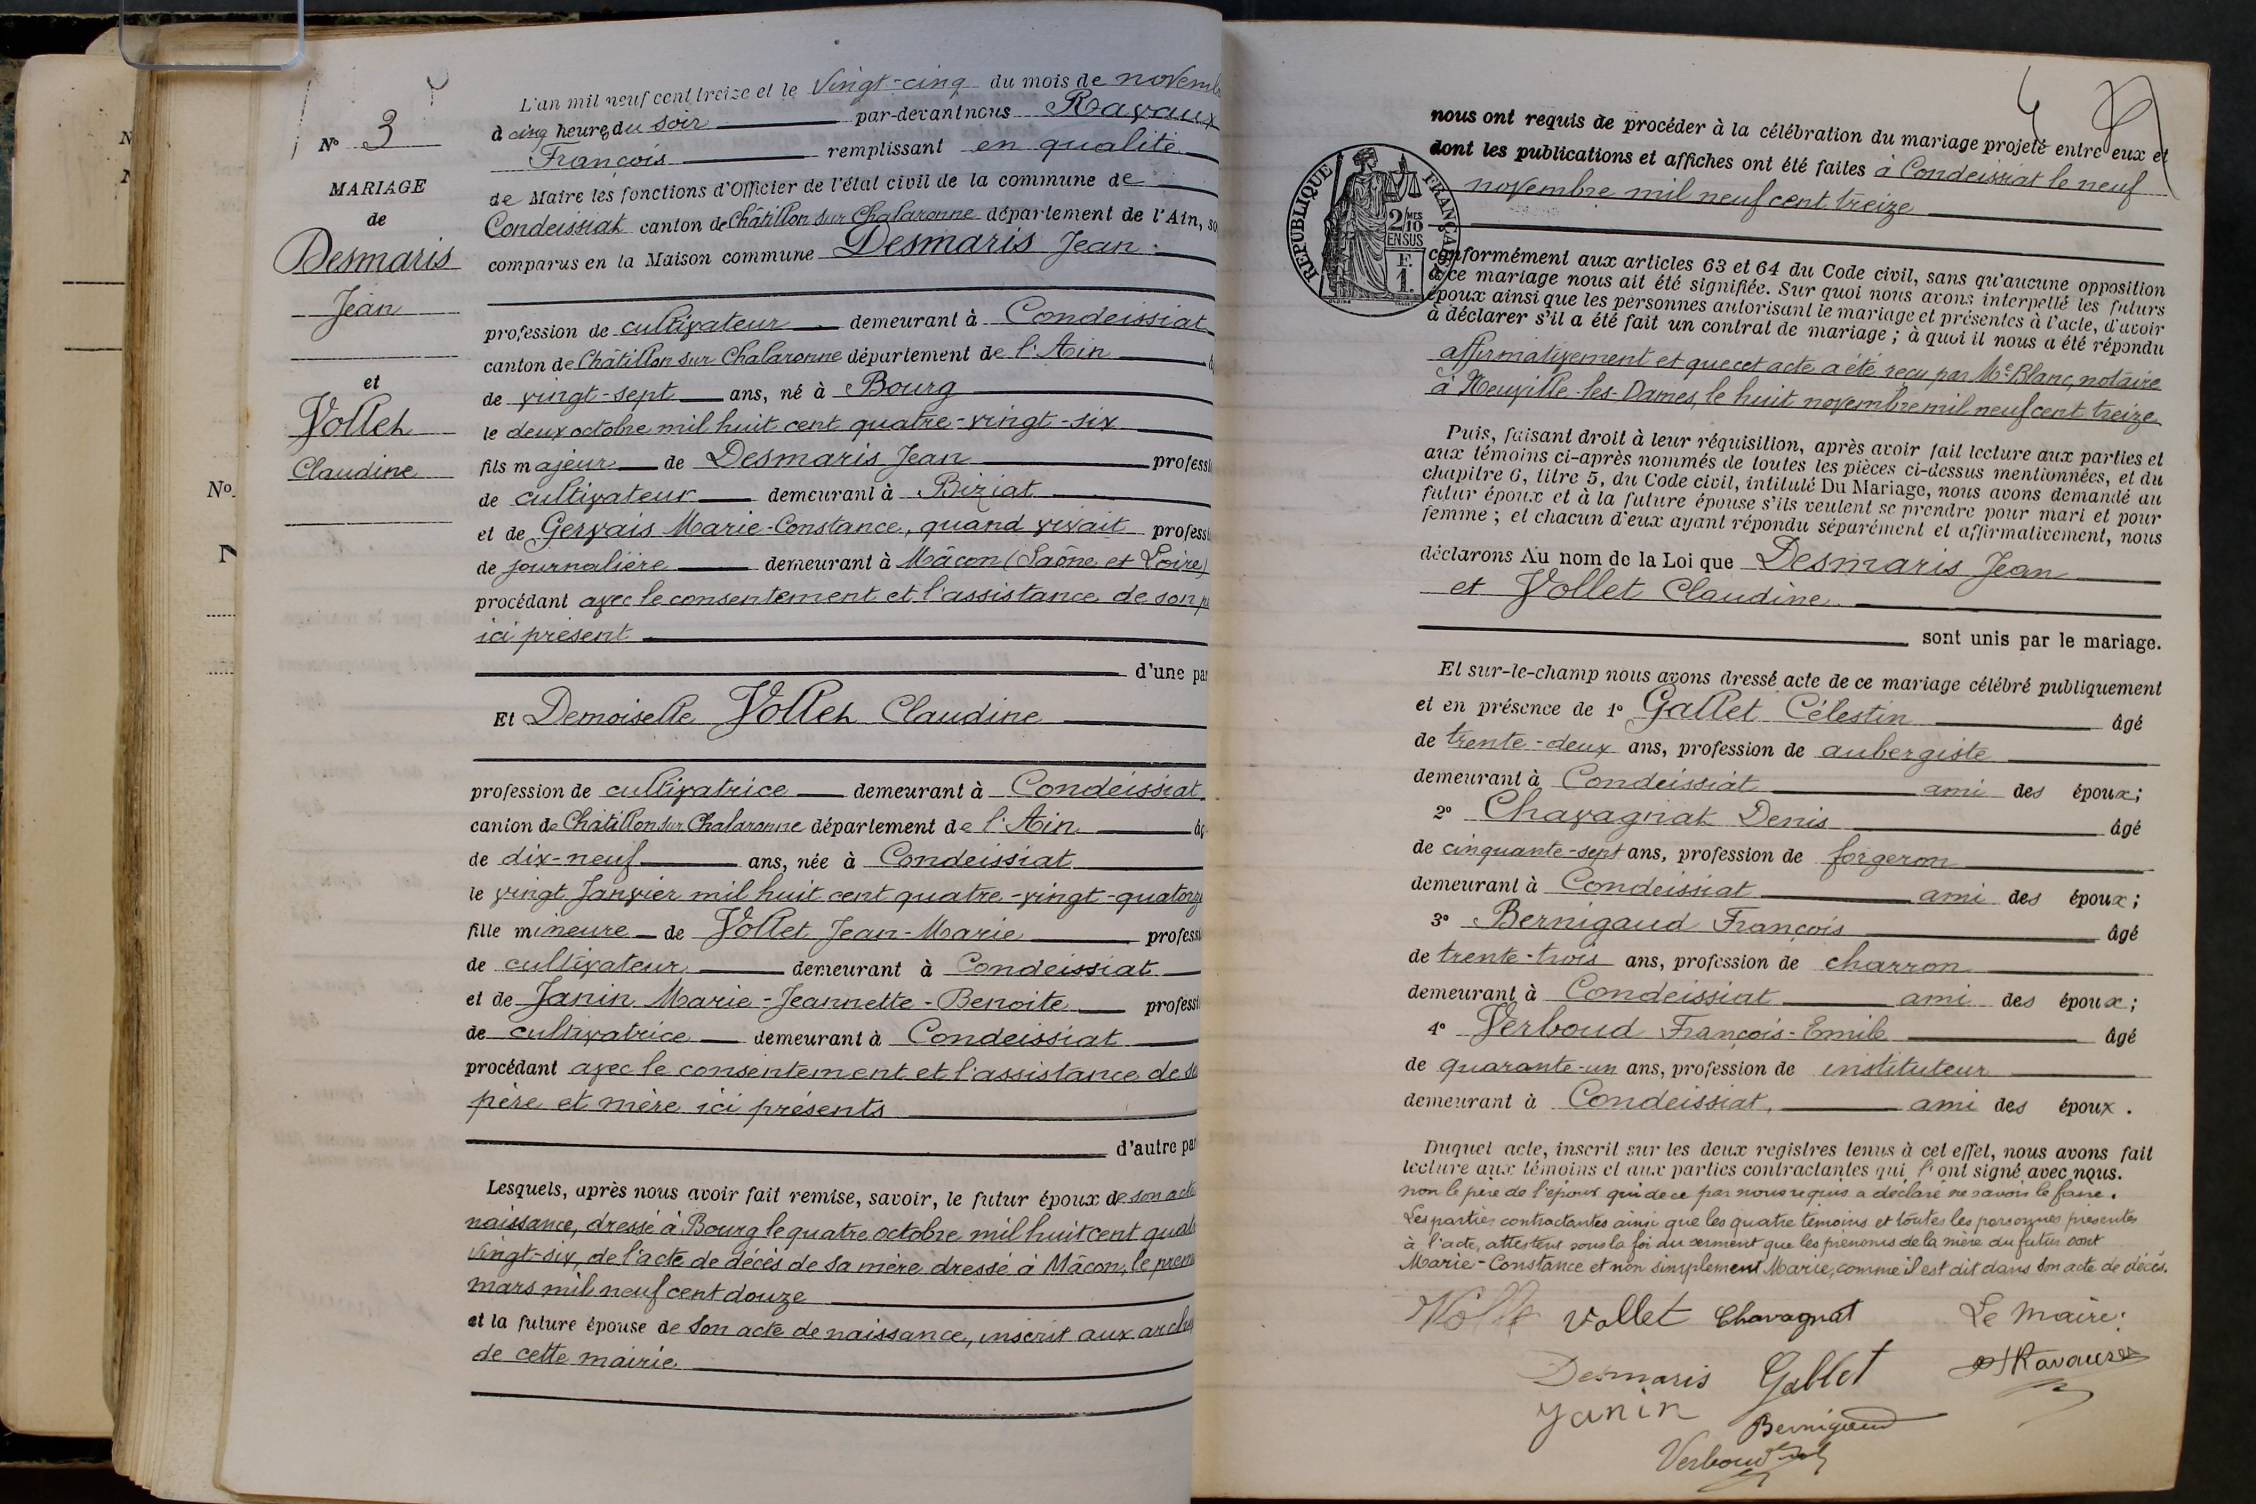 L'an mil neuf cent treize et le vingt-cinq du mois de novemb
à cinq heures du soir par-devant nous Ravaux
François remplissant en qualité
de Maire les fonctions d'Officier de l'état civil de la commune de
Condeissiat canton de Châtillon sur Chalaronne département de l'Ain, so
comparus en la Maison commune Desmaris Jean
profession de cultivateur demeurant à Condeissiat
canton de Châtillon sur Chalaronne département de l'Ain
de vingt-sept ans, né à Bourg
le deux octobre mil huit cent quatre-vingt-six
fils majeur de Desmaris Jean professi
de cultivateur demeurant à Biziat
et de Gervais Marie-Constance, quand vivait professi
de journalière demeurant à Mâcon (Saône et Loire)
procédant avec le consentement et l'assistance de son p
ici présent
d'une par
Et Demoiselle Vollet Claudine
profession de cultivatrice demeurant à Condeissiat
canton de Châtillon sur Chalaronne département de l'Ain âg
de dix-neuf ans, née à Condeissiat
le vingt Janvier mil huit cent quatre-vingt-quatorz
fille mineure de Vollet Jean-Marie professi
de cultivateur demeurant à Condeissiat
et de Janin Marie-Jeannette-Benoite professi
de cultivatrice demeurant à Condeissiat
procédant avec le consentement et l'assistance de se
père et mère ici présents
d'autre par
Lesquels, après nous avoir fait remise, savoir, le futur époux de son acte
naissance, dressé à Bourg le quatre octobre mil huit cent quat
vingt-six, de l'acte de décès de sa mère dressé à Mâcon, le prem
mars mil neuf cent douze
et la future épouse de son acte de naissance, inscrit aux archi
de cette mairie
N° 3
MARIAGE
de
Desmaris
Jean
et
Vollet
Claudine
N°
nous ont requis de procéder à la célébration du mariage projeté entre eux et
dont les publications et affiches ont été faites à Condeissiat le neuf
novembre mil neuf cent treize
RÉPUBLIQUE FRANÇAISE
2/10 MES
EN SUS
F.
1.
conformément aux articles 63 et 64 du Code civil, sans qu'aucune opposition
à ce mariage nous ait été signifiée. Sur quoi nous avons interpellé les futurs
époux ainsi que les personnes autorisant le mariage et présentes à l'acte, d'avoir
à déclarer s'il a été fait un contrat de mariage ; à quoi il nous a été répondu
affirmativement et que cet acte a été reçu par Me Blanc, notaire
à Neuville-les-Dames, le huit novembre mil neuf cent treize
Puis, faisant droit à leur réquisition, après avoir fait lecture aux parties et
aux témoins ci-après nommés de toutes les pièces ci-dessus mentionnées, et du
chapitre 6, titre 5, du Code civil, intitulé Du Mariage, nous avons demandé au
futur époux et à la future épouse s'ils veulent se prendre pour mari et pour
femme ; et chacun d'eux ayant répondu séparément et affirmativement, nous
déclarons Au nom de la Loi que Desmaris Jean
et Vollet Claudine
sont unis par le mariage.
Et sur-le-champ nous avons dressé acte de ce mariage célébré publiquement
et en présence de 1° Gallet Célestin âgé
de trente-deux ans, profession de aubergiste
demeurant à Condeissiat ami des époux ;
2° Chavagnat Denis âgé
de cinquante-sept ans, profession de forgeron
demeurant à Condeissiat ami des époux ;
3° Bernigaud François âgé
de trente-trois ans, profession de charron
demeurant à Condeissiat ami des époux ;
4° Verboud François-Emile âgé
de quarante-un ans, profession de instituteur
demeurant à Condeissiat, ami des époux.
Duquel acte, inscrit sur les deux registres tenus à cet effet, nous avons fait
lecture aux témoins et aux parties contractantes qui l'ont signé avec nous.
non le père de l'époux qui de ce par nous requis a déclaré ne savoir le faire.
Les parties contractantes ainsi que les quatre témoins et toutes les personnes présentes
à l'acte, attestent sous la foi du serment que les prénoms de la mère du futur sont
Marie-Constance et non simplement Marie, comme il est dit dans son acte de décès.
Vollet Chavagnat Le Maire :
Desmaris Gallet Ravaux
Janin Bernigaud
Verboud